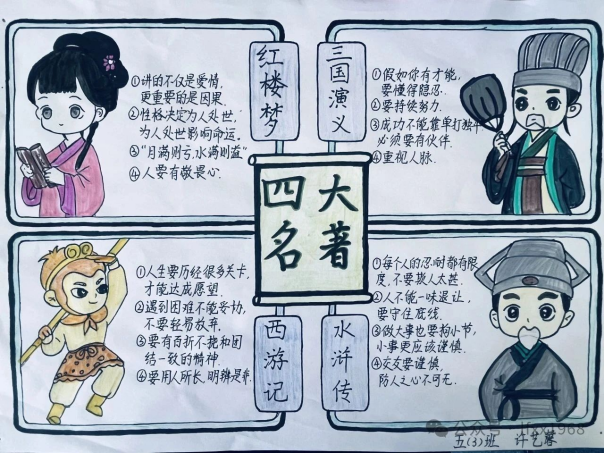 红楼梦
①讲的不仅是爱情,
更重要的是因果.
②性格决定为人处世,
为人处世影响命运.
③"月满则亏,水满则溢"
④人要有敬畏心.
三国演义
①假如你有才能,
要懂得隐忍.
②要持续努力.
③成功不能靠单打独斗
必须要有伙伴.
④重视人脉.
四大名著
西游记
①人生要历经很多关卡,
才能达成愿望.
②遇到困难不能妥协,
不要轻易放弃.
③要有百折不挠和团
结一致的精神.
④要用人所长,明辨是非.
水浒传
①每个人的忍耐都有限
度,不要欺人太甚.
②人不能一味退让,
要守住底线.
③做大事也要拘小节,
小事更应该谨慎.
④交友要谨慎,
防人之心不可无.
公众号
五(3)班 许艺